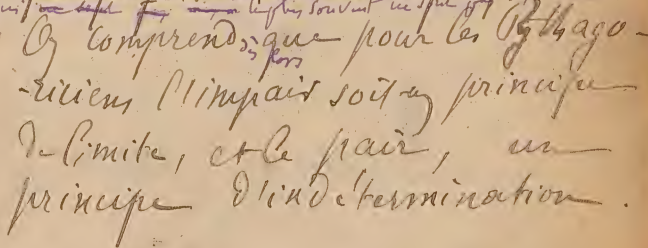 le plus souvent ne sont
On comprend dès lors que pour les Pythago-
-riciens l'impair soit un principe
de limite, et le pair, un
principe d'indétermination.